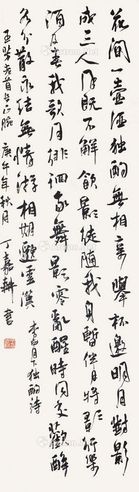 花间一壶酒独酌无相亲举杯邀明月对影
成三人月既不解饮影徒随我身暂伴月将影行乐
须及春我歌月徘徊我舞影零乱醒时同交欢醉
各分散永结无情游相期邈云汉 李白月下独酌诗
庚午年秋月 丁嘉耕书